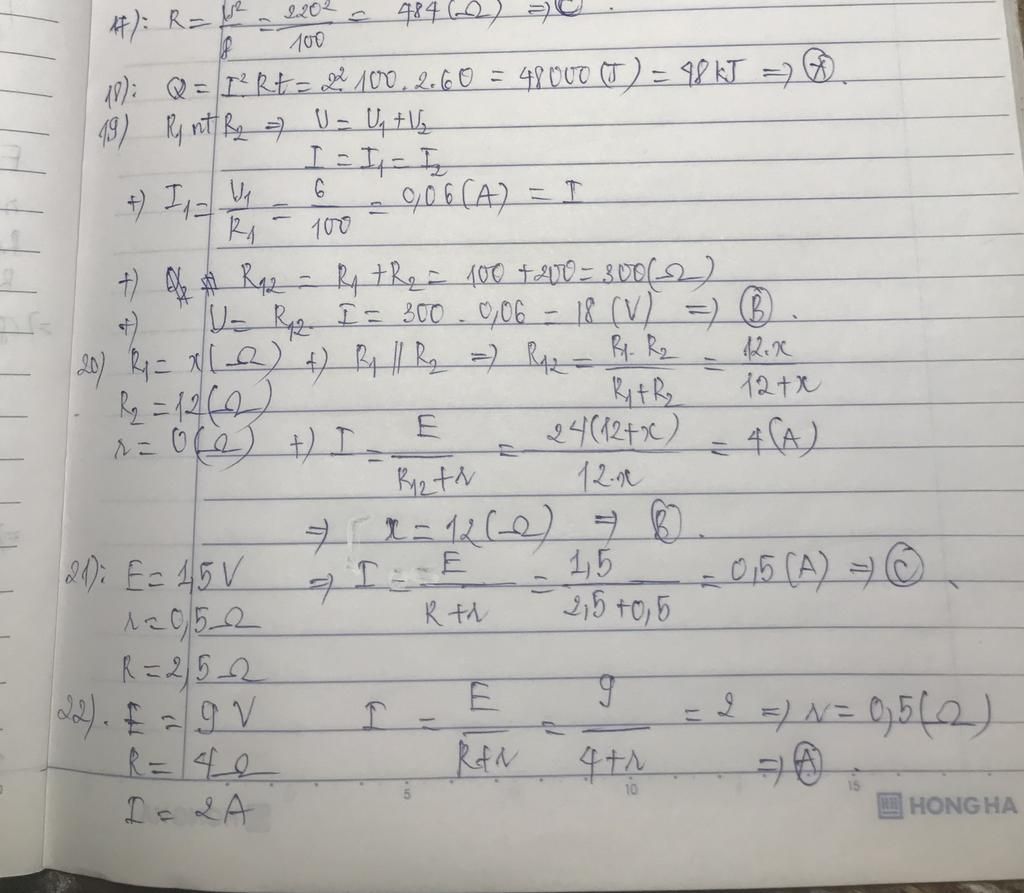 17): R = U²/P = 220²/100 = 484(Ω) => C.
18): Q = I²Rt = 2².100.2.60 = 48000(J) = 48kJ => A.
19) R₁ nt R₂ => U = U₁+U₂
I = I₁ = I₂
+) I₁ = U₁/R₁ = 6/100 = 0,06(A) = I
+) R₁₂ = R₁+R₂ = 100+200 = 300(Ω)
+) U = R₁₂. I = 300 . 0,06 = 18 (V) => B.
20) R₁ = x(Ω) +) R₁ // R₂ => R₁₂ = R₁.R₂/R₁+R₂ = 12.x/12+x
R₂ = 12(Ω)
r = 0(Ω) +) I = E/R₁₂+r = 24(12+x)/12.x = 4(A)
=> x = 12(Ω) => B.
21): E = 1,5V => I = E/R+r = 1,5/2,5+0,5 = 0,5(A) => C.
r = 0,5Ω
R = 2,5Ω
22). E = 9V I = E/R+r = 9/4+r = 2 => r = 0,5(Ω)
R = 4Ω => A.
I = 2A
5 10 15
HONG HA